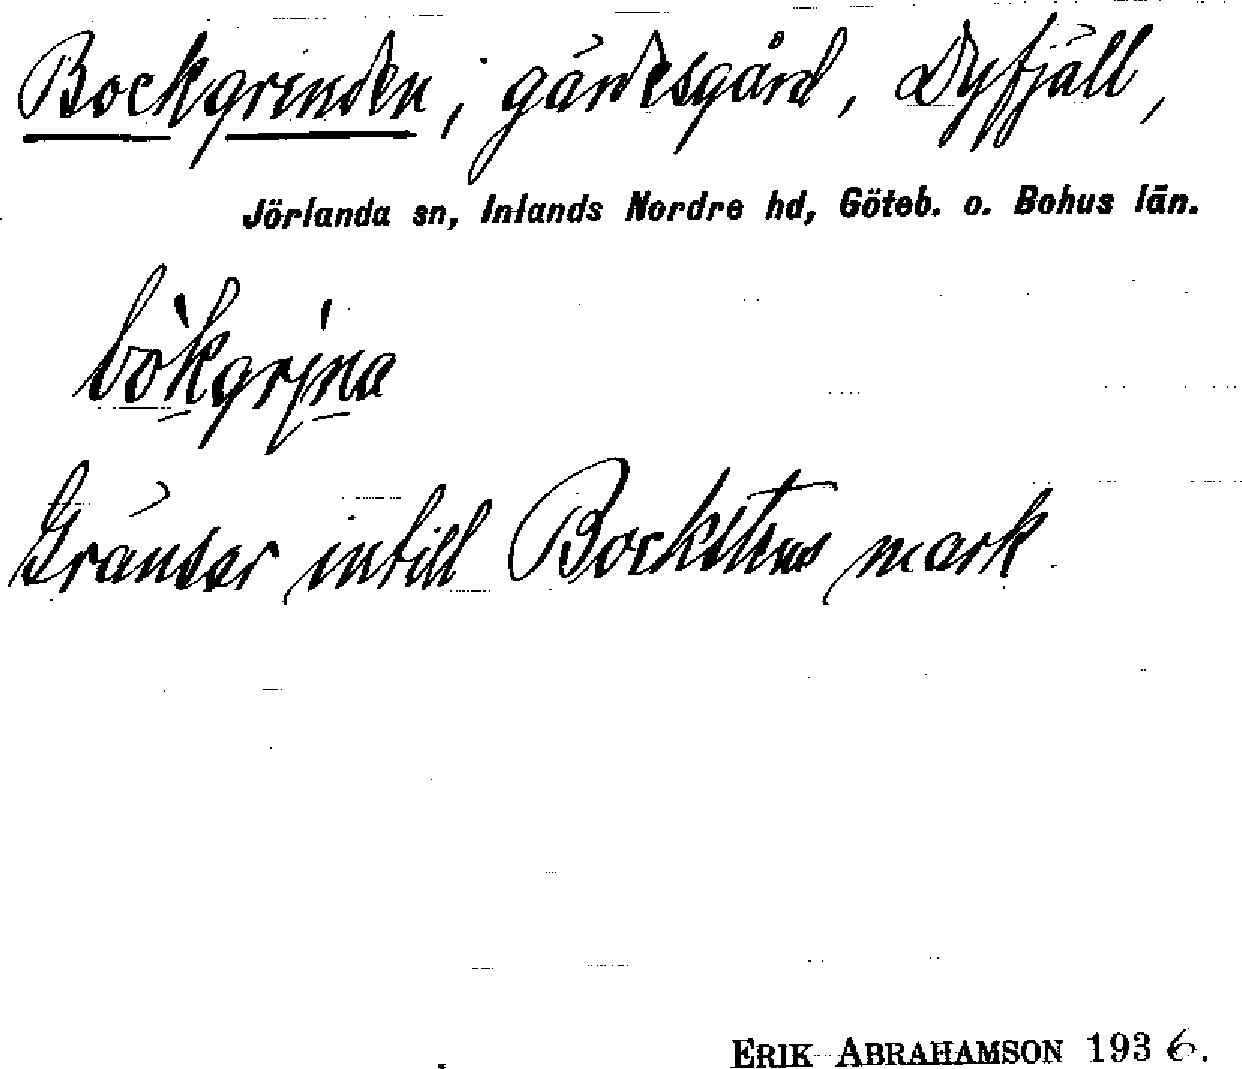 Bockgrinden, gärdesgård, Dyfjäll,
Jörlanda sn, Inlands Nordre hd, Göteb. o. Bohus län.
bòkgrı̍na
Gränsar intill Bockstens mark
ERIK ABRAHAMSON 1936.